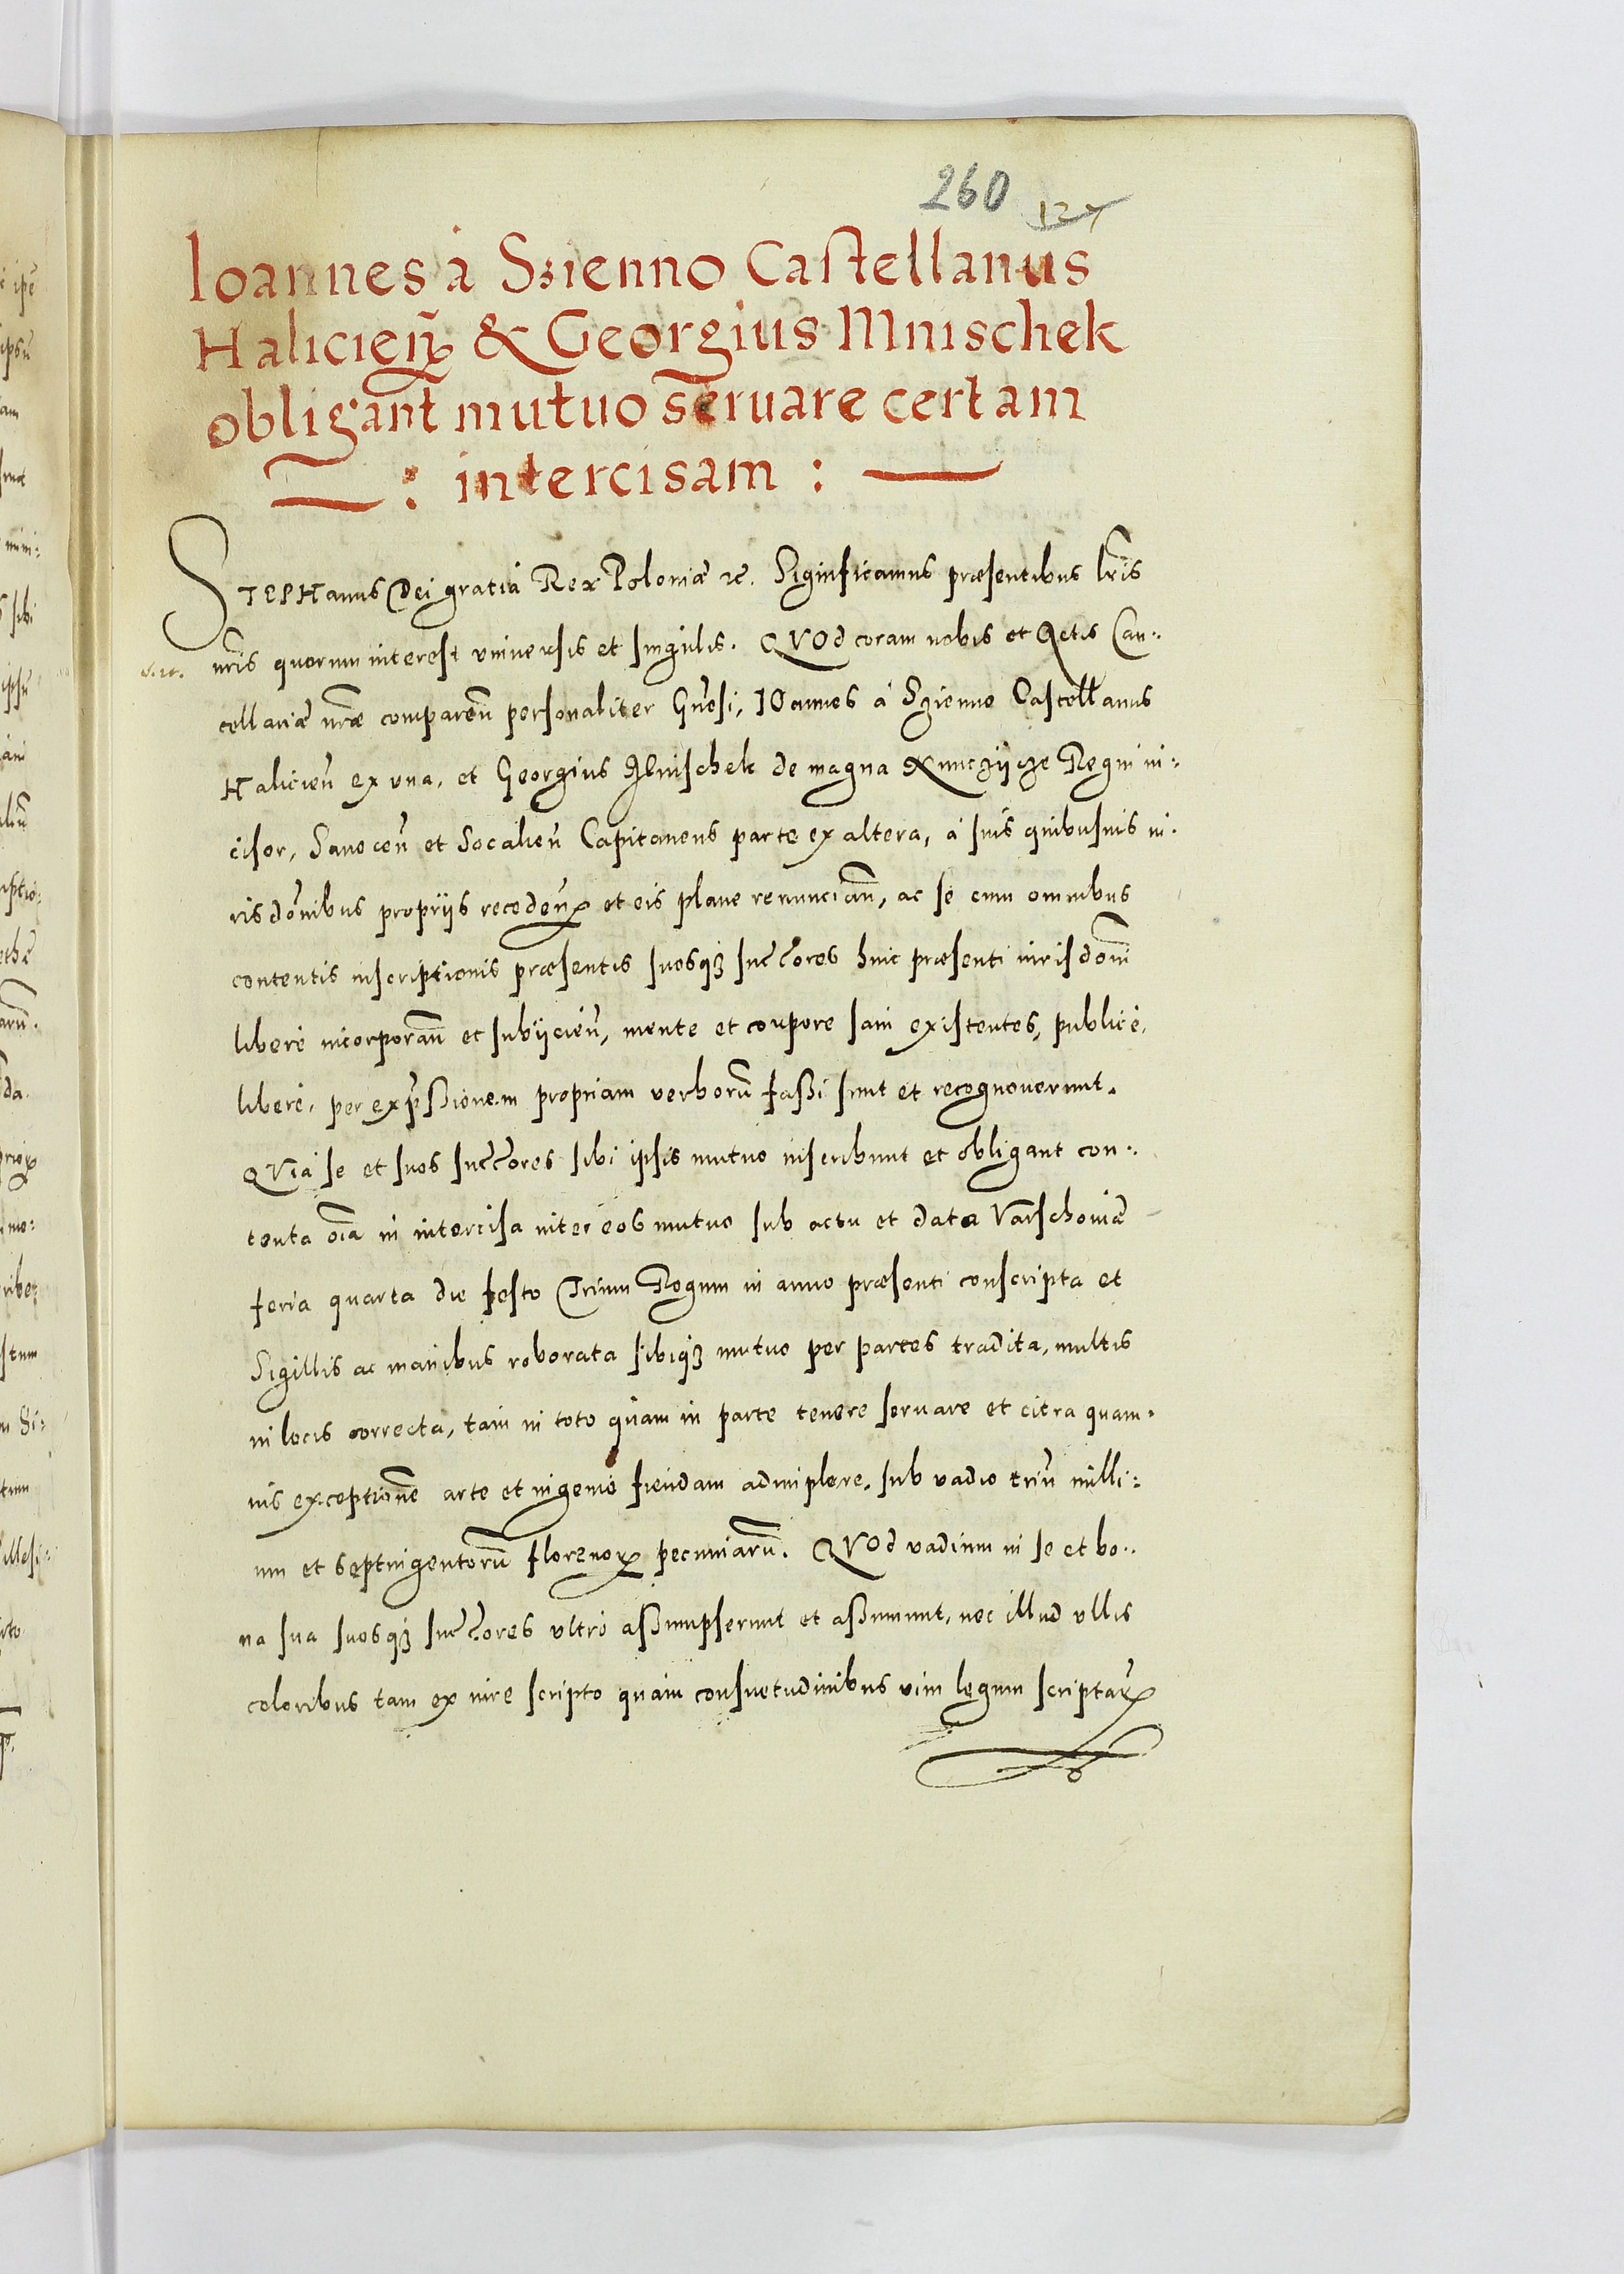 260 127
Ioannes à Szienno Castellanus
Halicieñ & Georgius Mnischek
obligant mutuo seruare certam
: intercisam :
STEPHanus Dei gratia Rex Poloniæ etc. Significamus præsentibus lr̃is
nr̃is quorum interest vniuersis et singulis. QVOd coram nobis et Actis Can:
cellariæ nr̃æ compareñ personaliter Gñosi, IOannes à Szienno Castellanus
Halicieñ ex vna, et Georgius Mnischek de magna Kunczijcze Regni in:
cisor, Sanoceñ et Socalieñ Capitaneus parte ex altera, à suis quibusuis iu:
risdõnibus proprijs recedeñ et eis plane renunciañ, ac se cum omnibus
contentis inscriptionis præsentis suosq3 succ̃ores huic præsenti iurisdõni
liberè incorporañ et subijcieñ, mente et corpore sani existentes, publicè,
liberè, per exp̃ssionem propriam verborũ fassi sunt et recognouerunt.
QVia se et suos succ̃ores sibi ipsis mutuo inscribunt et obligant con:
tenta oĩa in intercisa inter eos mutuo sub actu et data Varschouiæ
feria quarta die festo Trium Regum in anno præsenti conscripta et
Sigillis ac manibus roborata sibiq3 mutuo per partes tradita, multis
in locis correcta, tam in toto quam in parte tenere seruare et citra quam:
uis exceptionẽ arte et ingenio fiendam adimplere, sub vadio triũ milli:
um et septingentorũ florenorum pecuniarũ. QVOd vadium in se et bo:
na sua suosq3 succ̃ores vltrò assumpserunt et assumunt, nec illud vllis
coloribus tam ex iure scripto quam consuetudinibus vim legum scriptar̃